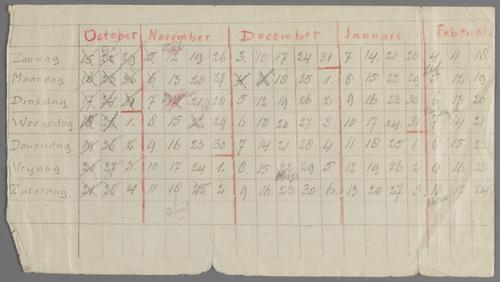 October November December Januari Februari
Zondag 15 22 29 5 12 19 26 3. 10 17 24 31 7 14 21 28 4 11 18
Maandag 16 23 30 6 13 20 27 4 11 18 25 1. 8 15 22 29 5 12 19
Dinsdag 17 24 31 7 21 28 5 12 19 26 2 9 16 23 30 6 13 20
Woensdag 18 25 1. 8 15 22 29 6 13 20 27 3. 10 17 24 31 7 14 21
Donderdag 19 26 2 9 16 23 30 7 14 21 28 4 11 18 25 1 8 15
Vrijdag 20 27 3 10 17 24 1. 8 15 22 29 5 12 19 26 2 9 16 23
Zaterdag 21 28 4 11 18 25 2. 9 16 23 30 6 13 20 27 3 10 17 24